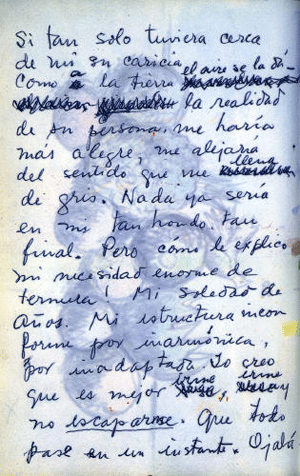 Si tan solo tuviera cerca
de mí su caricia
Como a la tierra el aire se la dá—
la realidad
de su persona, me haría
más alegre, me alejaria
del sentido que me llena
de gris. Nada ya sería
en mi tan hondo, tan
final. Pero cómo le explico
mi necesidad enorme de
ternura! Mi soledad de
años. Mi estructura incon
forme por inarmónica,
por inadaptada. Yo creo
que es mejor irme, irme
no escaparme. Que todo
pase en un instante. Ojalá